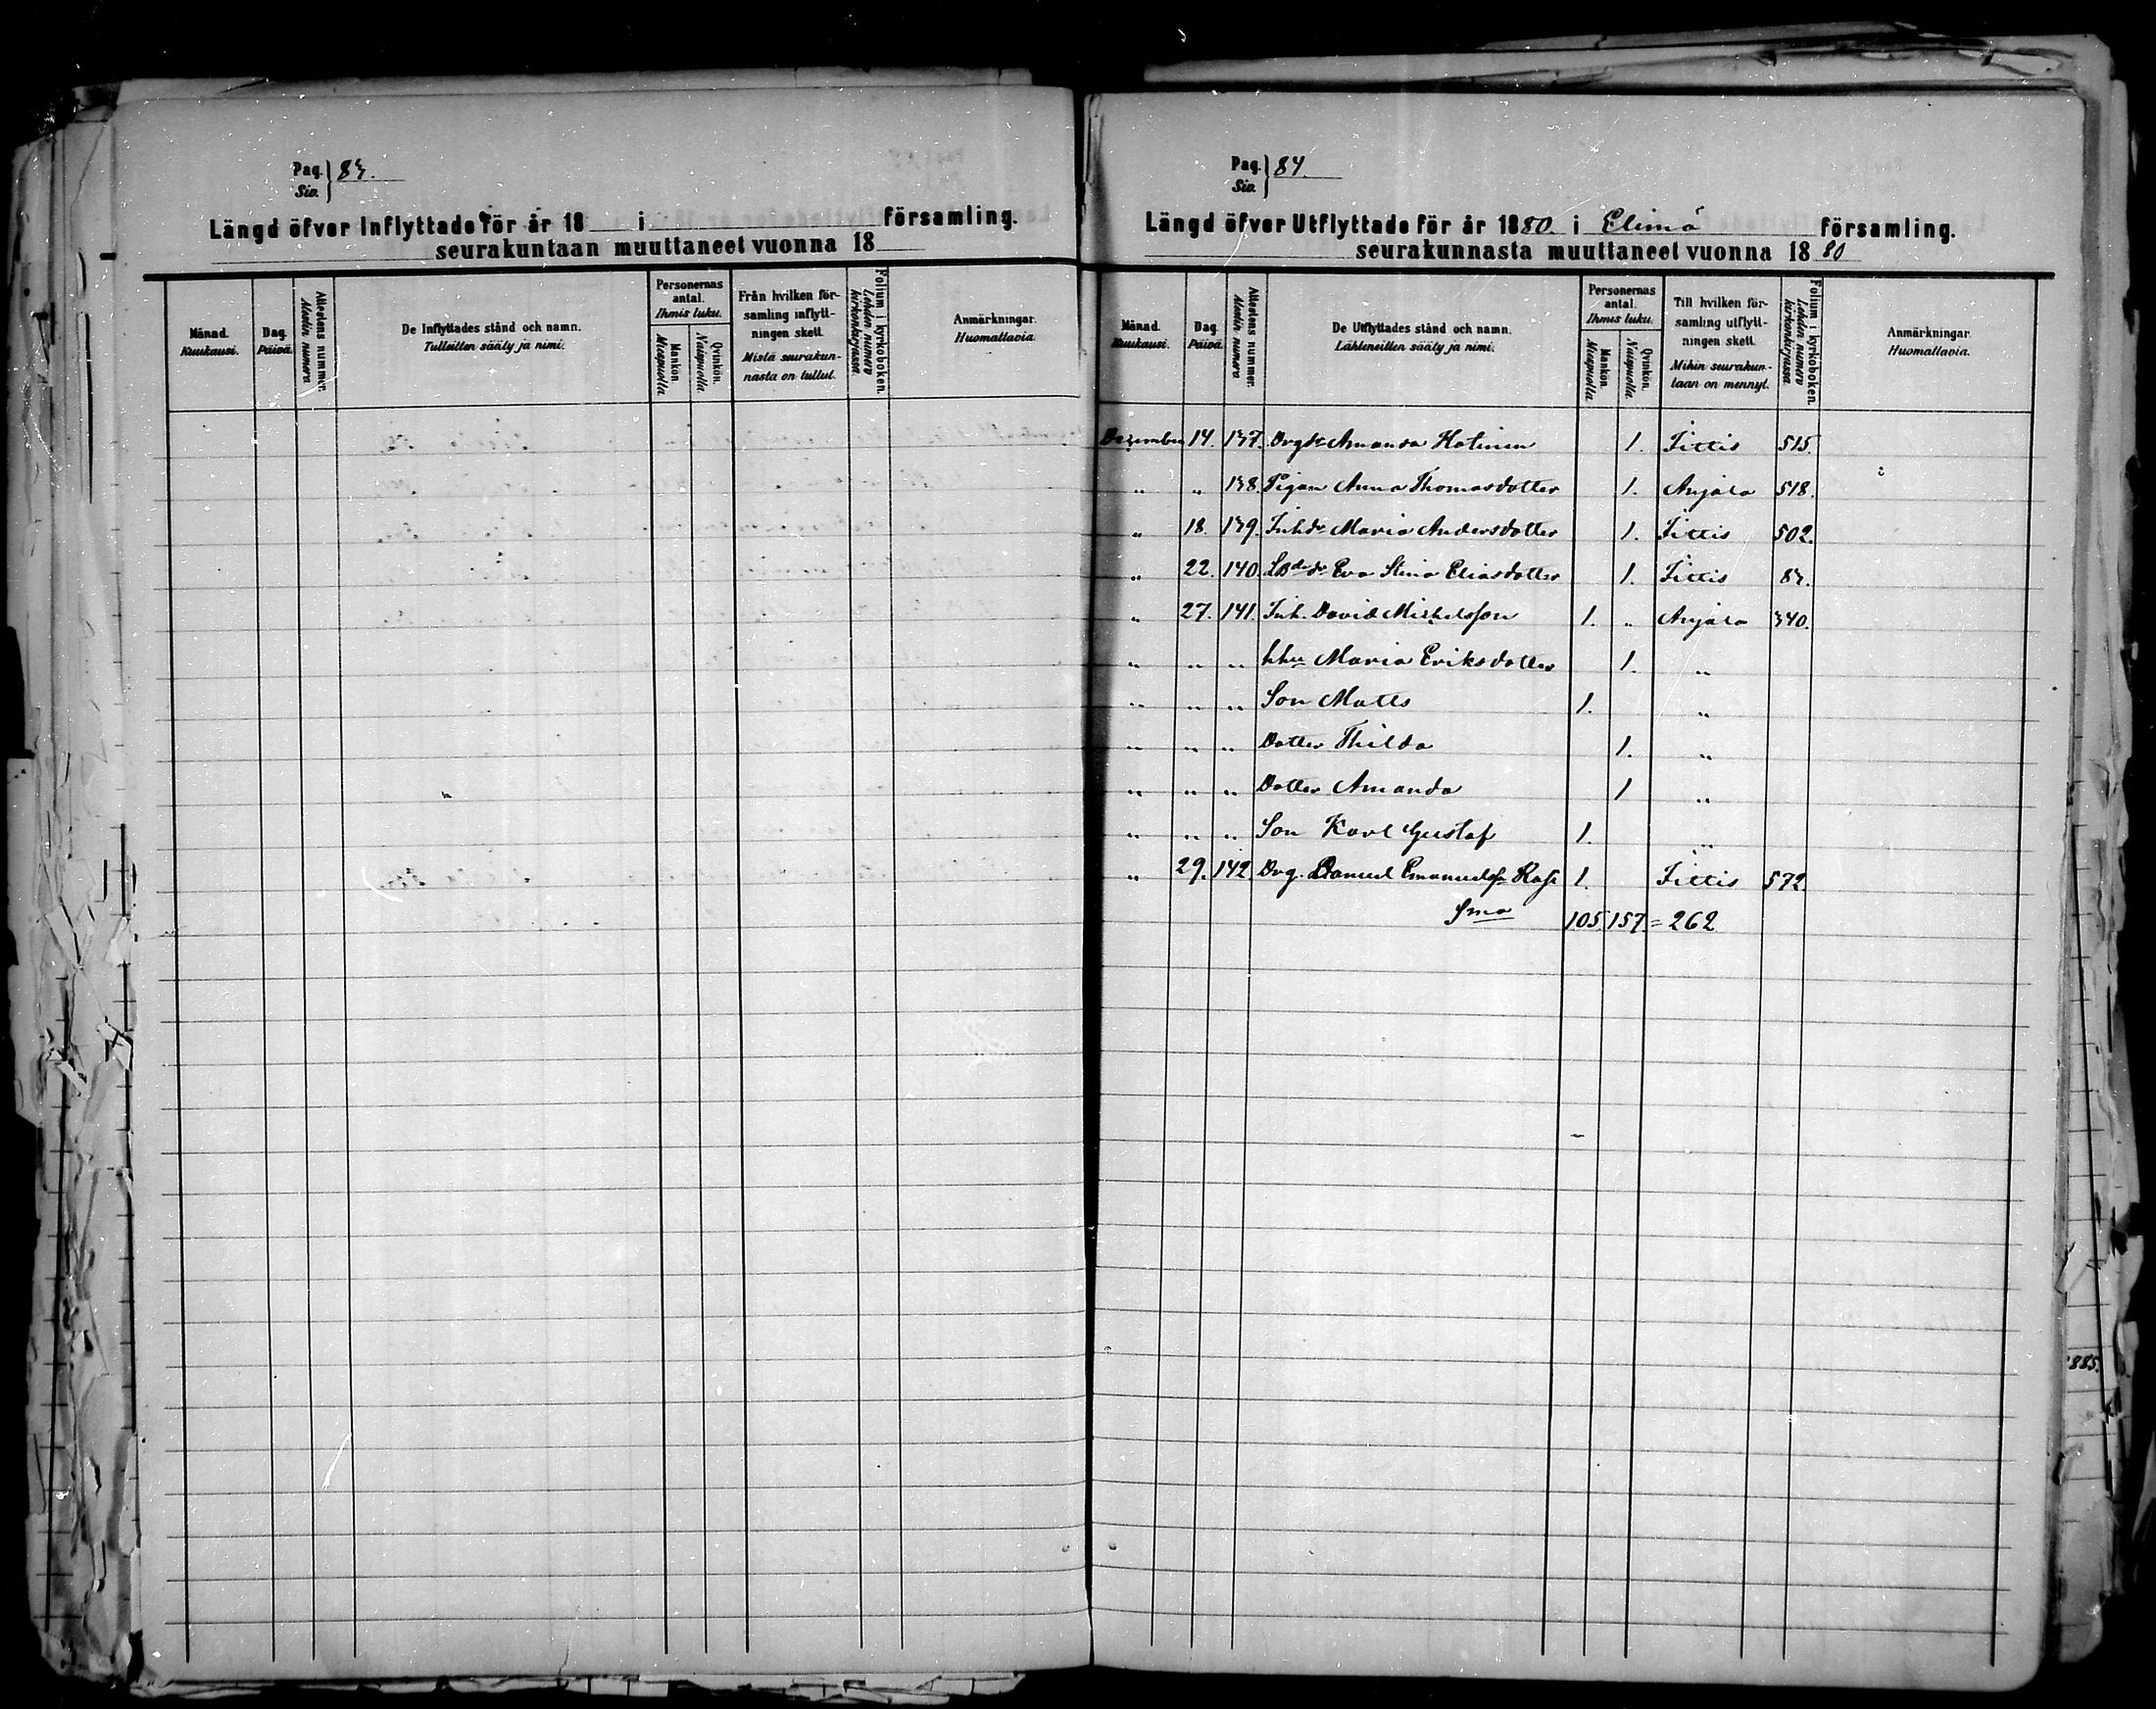 Pag. 83.
Siv.
Längd öfver Inflyttade för år 18 i församling.
seurakuntaan muuttaneet vuonna 18
Månad. Kuukausi. Dag. Päivä. Attestens nummer. Alestin numero. De Inflyttades stånd och namn. Tulleitten sääty ja nimi. Personernas antal. Ihmis luku. Mankön. Miespuolia Qvinkön. Naispuolia. Från hvilken församling inflyttningen skett. Mistä seurakunnasta on tullut. Folium i kyrkoboken. Lehden numero kirkonkirjassa. Anmärkningar. Huomattavia.
Pag. 84.
Siv.
Längd öfver Utflyttade för år 1880 i Elimä församling.
seurakunnasta muuttaneet vuonna 1880
Månad. Kuukausi. Dag. Päivä. Attestens nummer. Alestin numero De Utflyttades stånd och namn. Lähteneitten sääty ja nimi. Personernas antal. Ihmis luku. Mankön. Miespuolia Qvinkön. Naispuolia. Till hvilken församling utflyttningen skett. Mihin seurakuntaan on mennyt. Folium i kyrkoboken. Lehden numero kirkonkirjassa. Anmärkningar. Huomattavia.
December 14. 137. Drgdr Amanda Hotinen 1. Fittis 515.
" " 138. Pigan Anna Thomasdotter 1. Anjala 518.
" 18. 139. Inhdr Maria Andersdotter 1. Fittis 502.
" 22. 140. Eva Stina Eliasdotter 1. Fittis 83.
" 27. 141. Inh. David Michelsson 1. " Anjala 340.
" " " hhu Maria Eriksdotter 1. "
" " " Son Matts 1. "
" " " Dotter Thilda 1. "
" " " Dotter Amanda 1 "
" " " Son Karl Gustaf 1. "
" 29. 142. Drg. Daniel Emanuelss. 1. Fittis 572.
Sma 105 157 = 262
885.